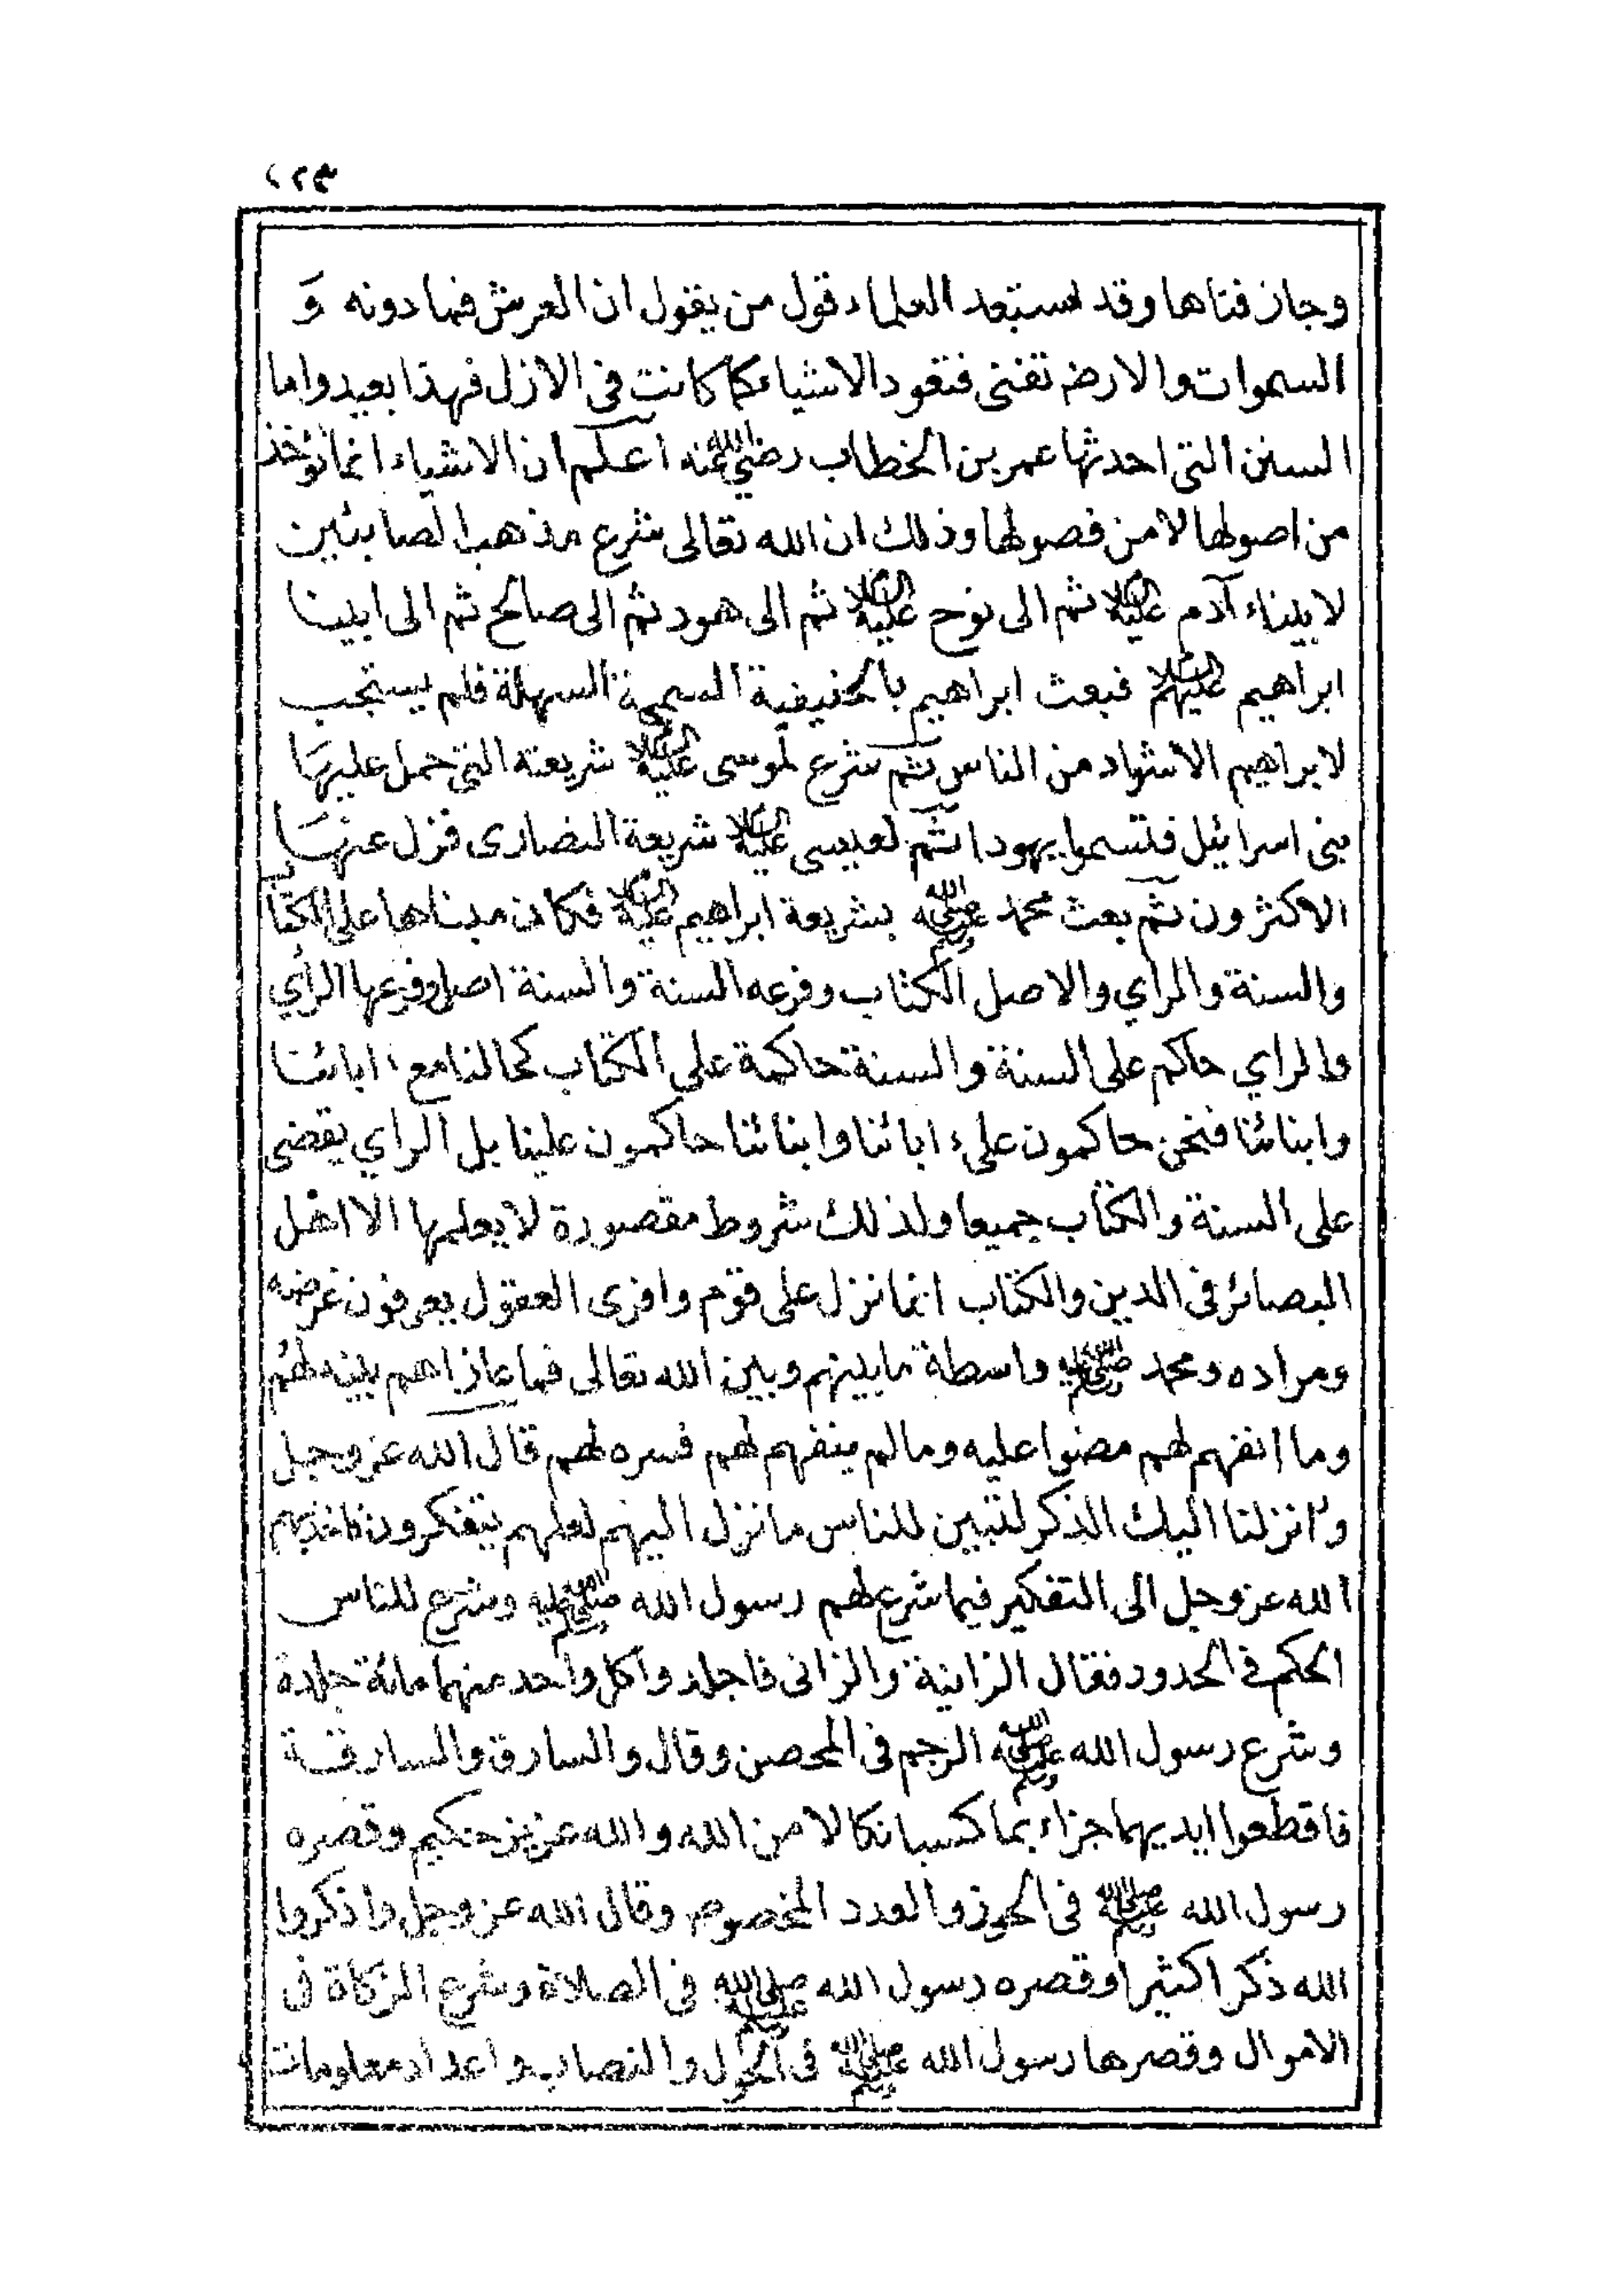 ٤٢٣
وجاز فناها وقد استبعد العلماء قول من يقول ان العرش فما دونه وَ
السموات والارض تفنى فتعود الاشياء كما كانت فى الازل فهذا بعيد واما
السنن التى احدثها عمر بن الخطاب رضي الله عنه اعلم ان الاشياء انما تؤخذ
من اصولها لا من فصولها وذلك ان الله تعالى شرع مذهب الصابئين
لابيناء آدم عليه السلام ثم الى نوح عليه السلام ثم الى هود ثم الى صالح ثم الى ابينا
ابراهيم عليهم السلام فبعث ابراهيم بالحنيفية السمحة السهلة فلم يستجب
لابراهيم الا شهاد من الناس ثم شرع لموسى عليه السلام شريعته التى حمل عليهَا
بنى اسرائيل فتسموا يهودا ثم لعيسى عليه السلام شريعة النصارى فنزل عنهَا
الاكثرون ثم بعث محمد صلى الله عليه وسلم بشريعة ابراهيم عليه السلام فكان مبناها على الكتاب
والسنة والراي والاصل الكتاب وفرعه السنة والسنة اصل وفرعها الرأي
والراي حاكم على السنة والسنة حاكمة على الكتاب كحالنا مع ابائنا
وابنائنا فنحن حاكمون على ابائنا وابنائنا حاكمون علينا بل الراي يقضى
على السنة والكتاب جميعا ولذلك شروط مقصورة لا يعلمها الا اهل
البصائر فى الدين والكتاب انما نزل على قوم وافرى العقول يعرفون غرضه
ومراده ومحمد صلى الله عليه وسلم واسطة ما بينهم وبين الله تعالى فما عازاهم بينه لهُم
وما انفهم لهم مضوا عليه وما لم ينفهم لهم فسره لهم قال الله عز وجل
وانزلنا اليك الذكر لتبين للناس ما نزل اليهم لعلهم يتفكرون فاخذبهم
الله عز وجل الى التفكير فيما شرع لهم رسول الله صلى الله عليه وسلم وشرع للناس
الحكم فى الحدود فقال الزانية والزانى فاجلدوا كل واحد منهما مائة جلدة
وشرع رسول الله صلى الله عليه وسلم الرجم فى المحصن وقال والسارق والسارقة
فاقطعوا ايديهما جزاء بما كسبا نكالا من الله والله عزيز حكيم وقصره
رسول الله صلى الله عليه وسلم فى الحرز والعدد المخصوص وقال الله عز وجل واذكروا
الله ذكرا كثيرا وقصره رسول الله صلى الله عليه وسلم فى الصلاة وشرع الزكاة فى
الاموال وقصرها رسول الله صلى الله عليه وسلم فى الحول والنصاب واعداد معلومات